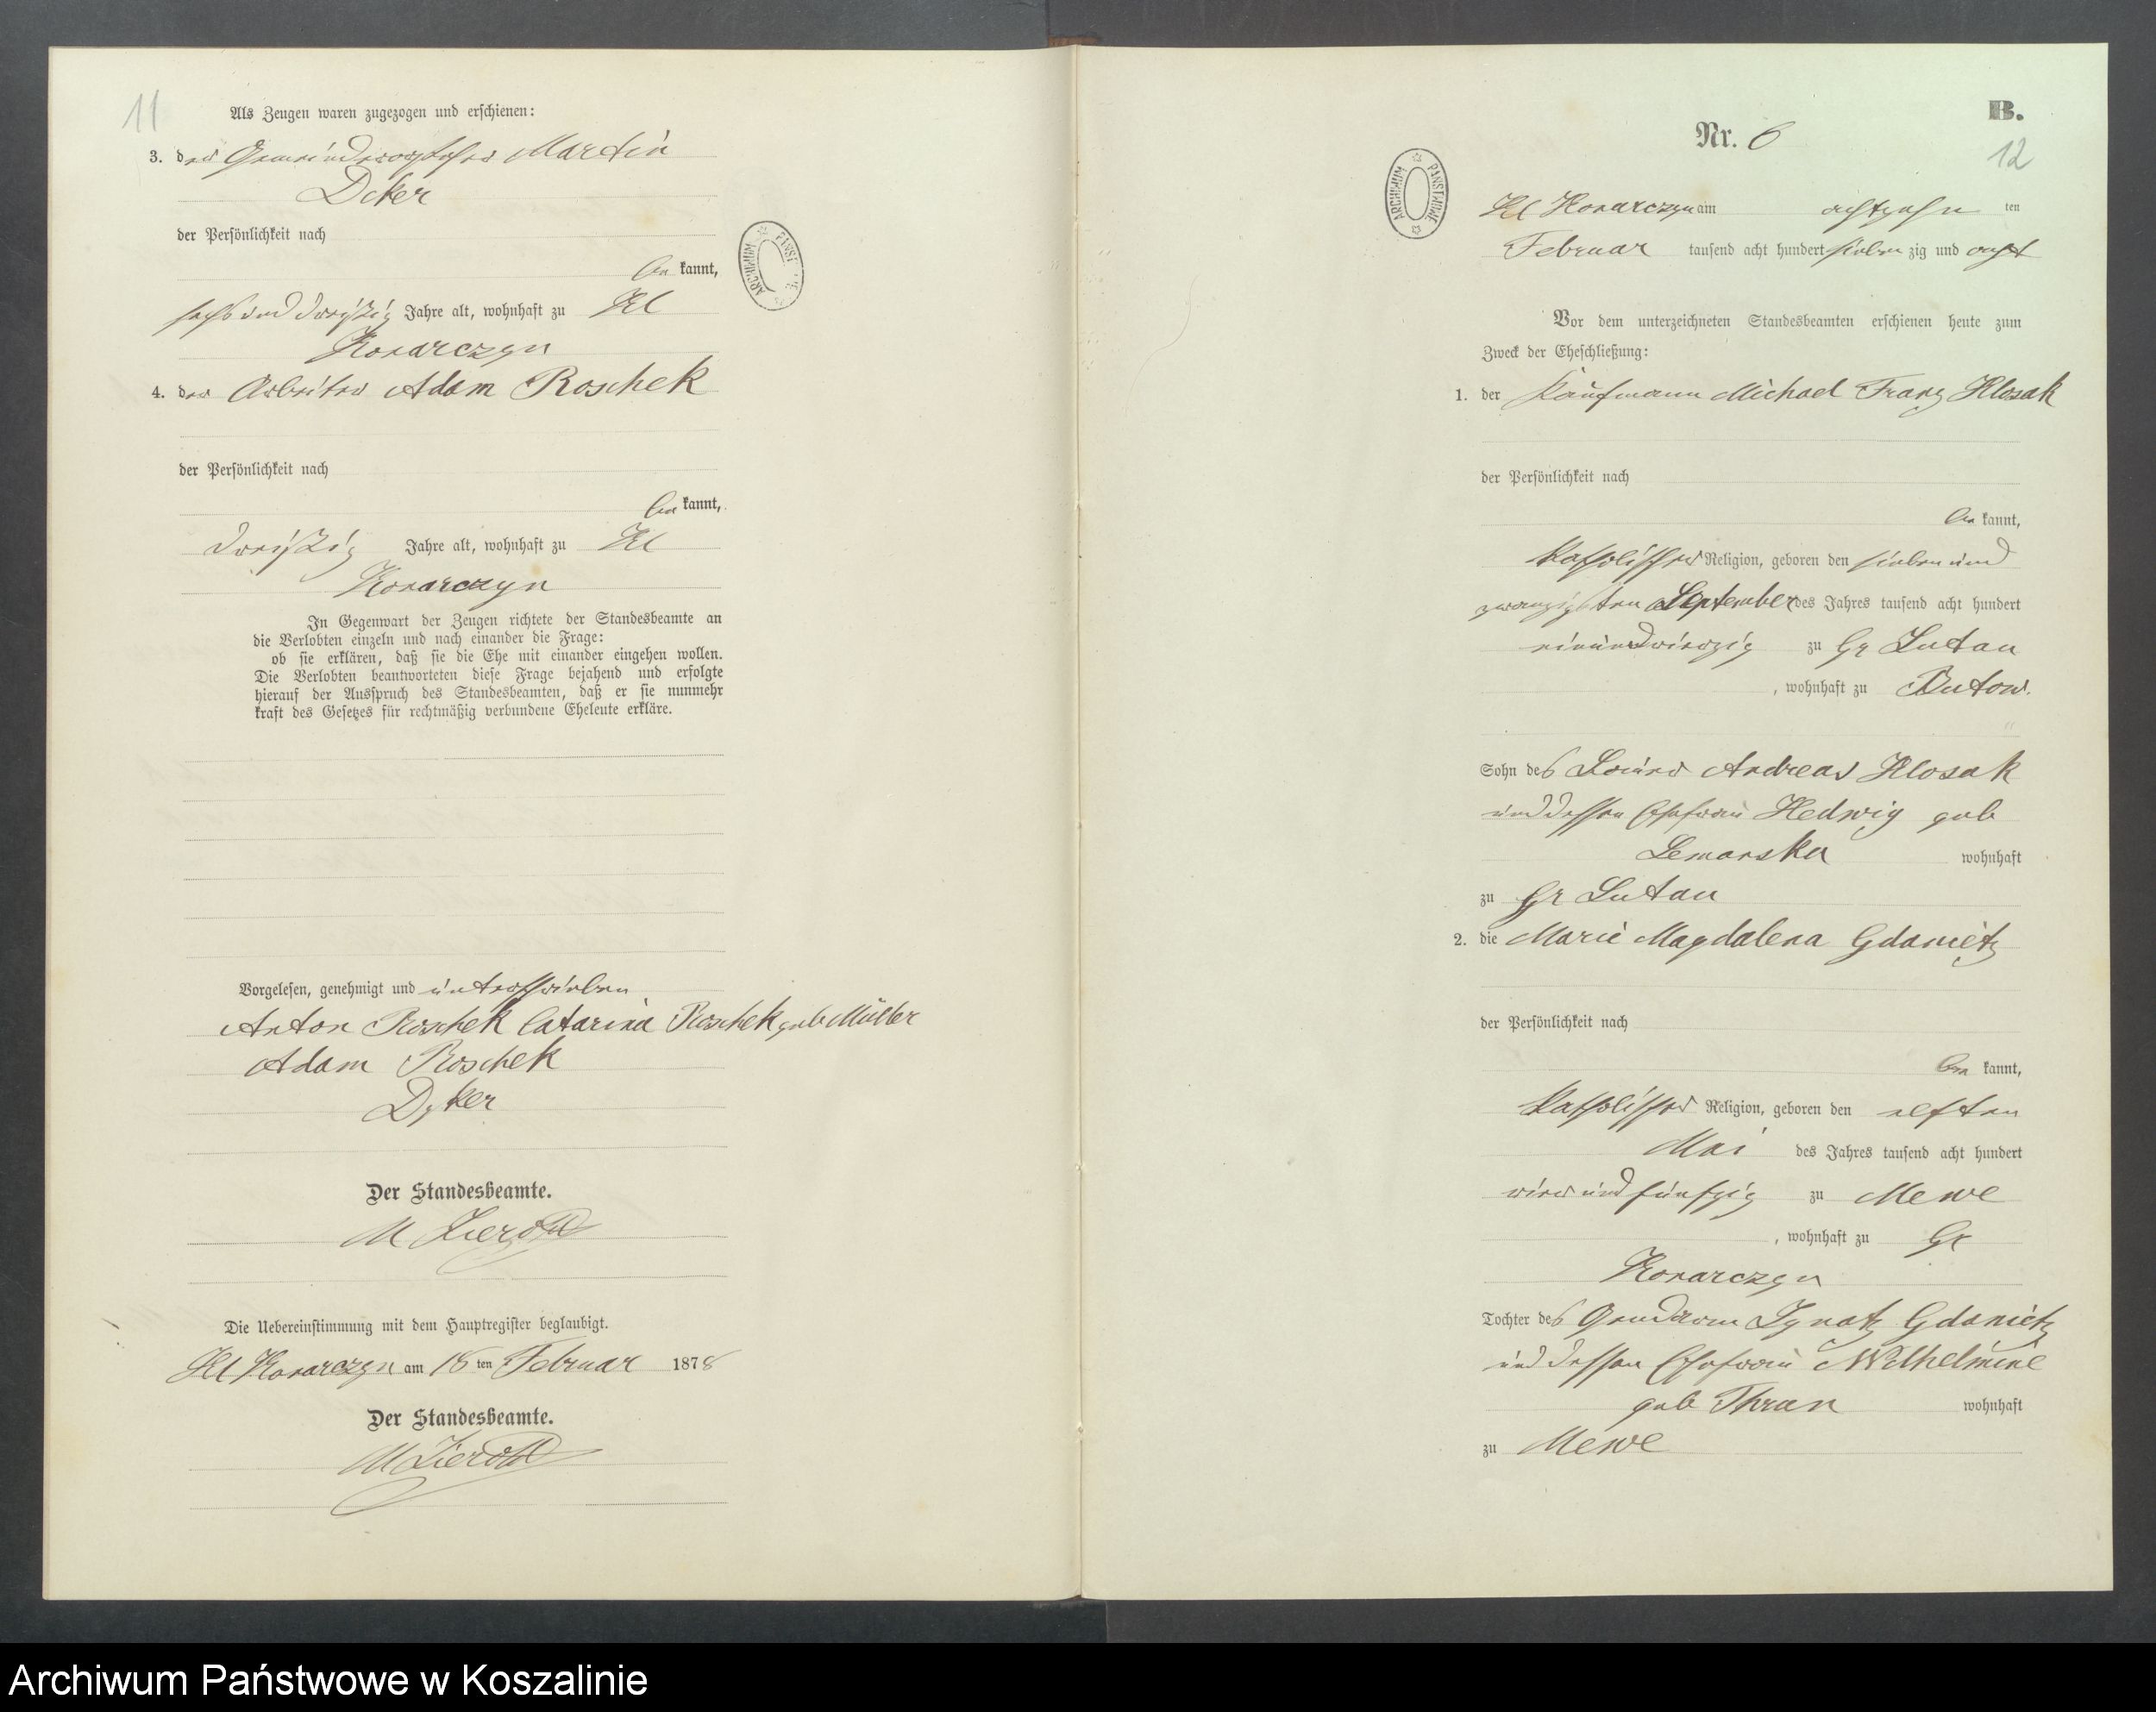 11
Als Zeugen waren zugezogen und erschienen:
3. der Gemeindevorsteher Martin
Dcker
der Persönlichkeit nach
be kannt,
sechs und dreißig Jahre alt, wohnhaft zu Kl
Konarczyn
4. der Arbeiter Adam Roschek
der Persönlichkeit nach
be kannt,
dreißig Jahre alt, wohnhaft zu Kl
Konarczyn
In Gegenwart der Zeugen richtete der Standesbeamte an
die Verlobten einzeln und nach einander die Frage:
ob sie erklären, daß sie die Ehe mit einander eingehen wollen.
Die Verlobten beantworteten diese Frage bejahend und erfolgte
hierauf der Ausspruch des Standesbeamten, daß er sie nunmehr
kraft des Gesetzes für rechtmäßig verbundene Eheleute erkläre.
Vorgelesen, genehmigt und unterschrieben
Anton Roschek Catarina Roschek geb Müller
Adam Roschek
Der Standesbeamte.
M Zieroth
Die Uebereinstimmung mit dem Hauptregister beglaubigt.
Kl Konarczyn am 18 ten Februar 1878
Der Standesbeamte.
M Zieroth
ARCHIWUM PAŃSTWOWE
B.
Nr. 6
12
Kl Konarczyn am achtzehn ten
Februar tausend acht hundert sieben zig und acht
Vor dem unterzeichneten Standesbeamten erschienen heute zum
Zweck der Eheschließung:
1. der Kaufmann Michael Franz Klosak
der Persönlichkeit nach
be kannt,
katholischer Religion, geboren den sieben und
zwanzigsten September des Jahres tausend acht hundert
einundvierzig zu Gr Lutau
, wohnhaft zu Butow.
Sohn des Bauer Andreas Klosak
und dessen Ehefrau Hedwig geb
Lemanska wohnhaft
zu Gr Lutau
2. die Marie Magdalena Gdanietz
der Persönlichkeit nach
be kannt,
katholischer Religion, geboren den elften
Mai des Jahres tausend acht hundert
vier und fünfzig zu Mewe
, wohnhaft zu Gr
Konarczyn
Tochter des Gendarm Ignatz Gdanietz
und dessen Ehefrau Wilhelmine
geb Thran wohnhaft
zu Mewe
Archiwum Państwowe w Koszalinie